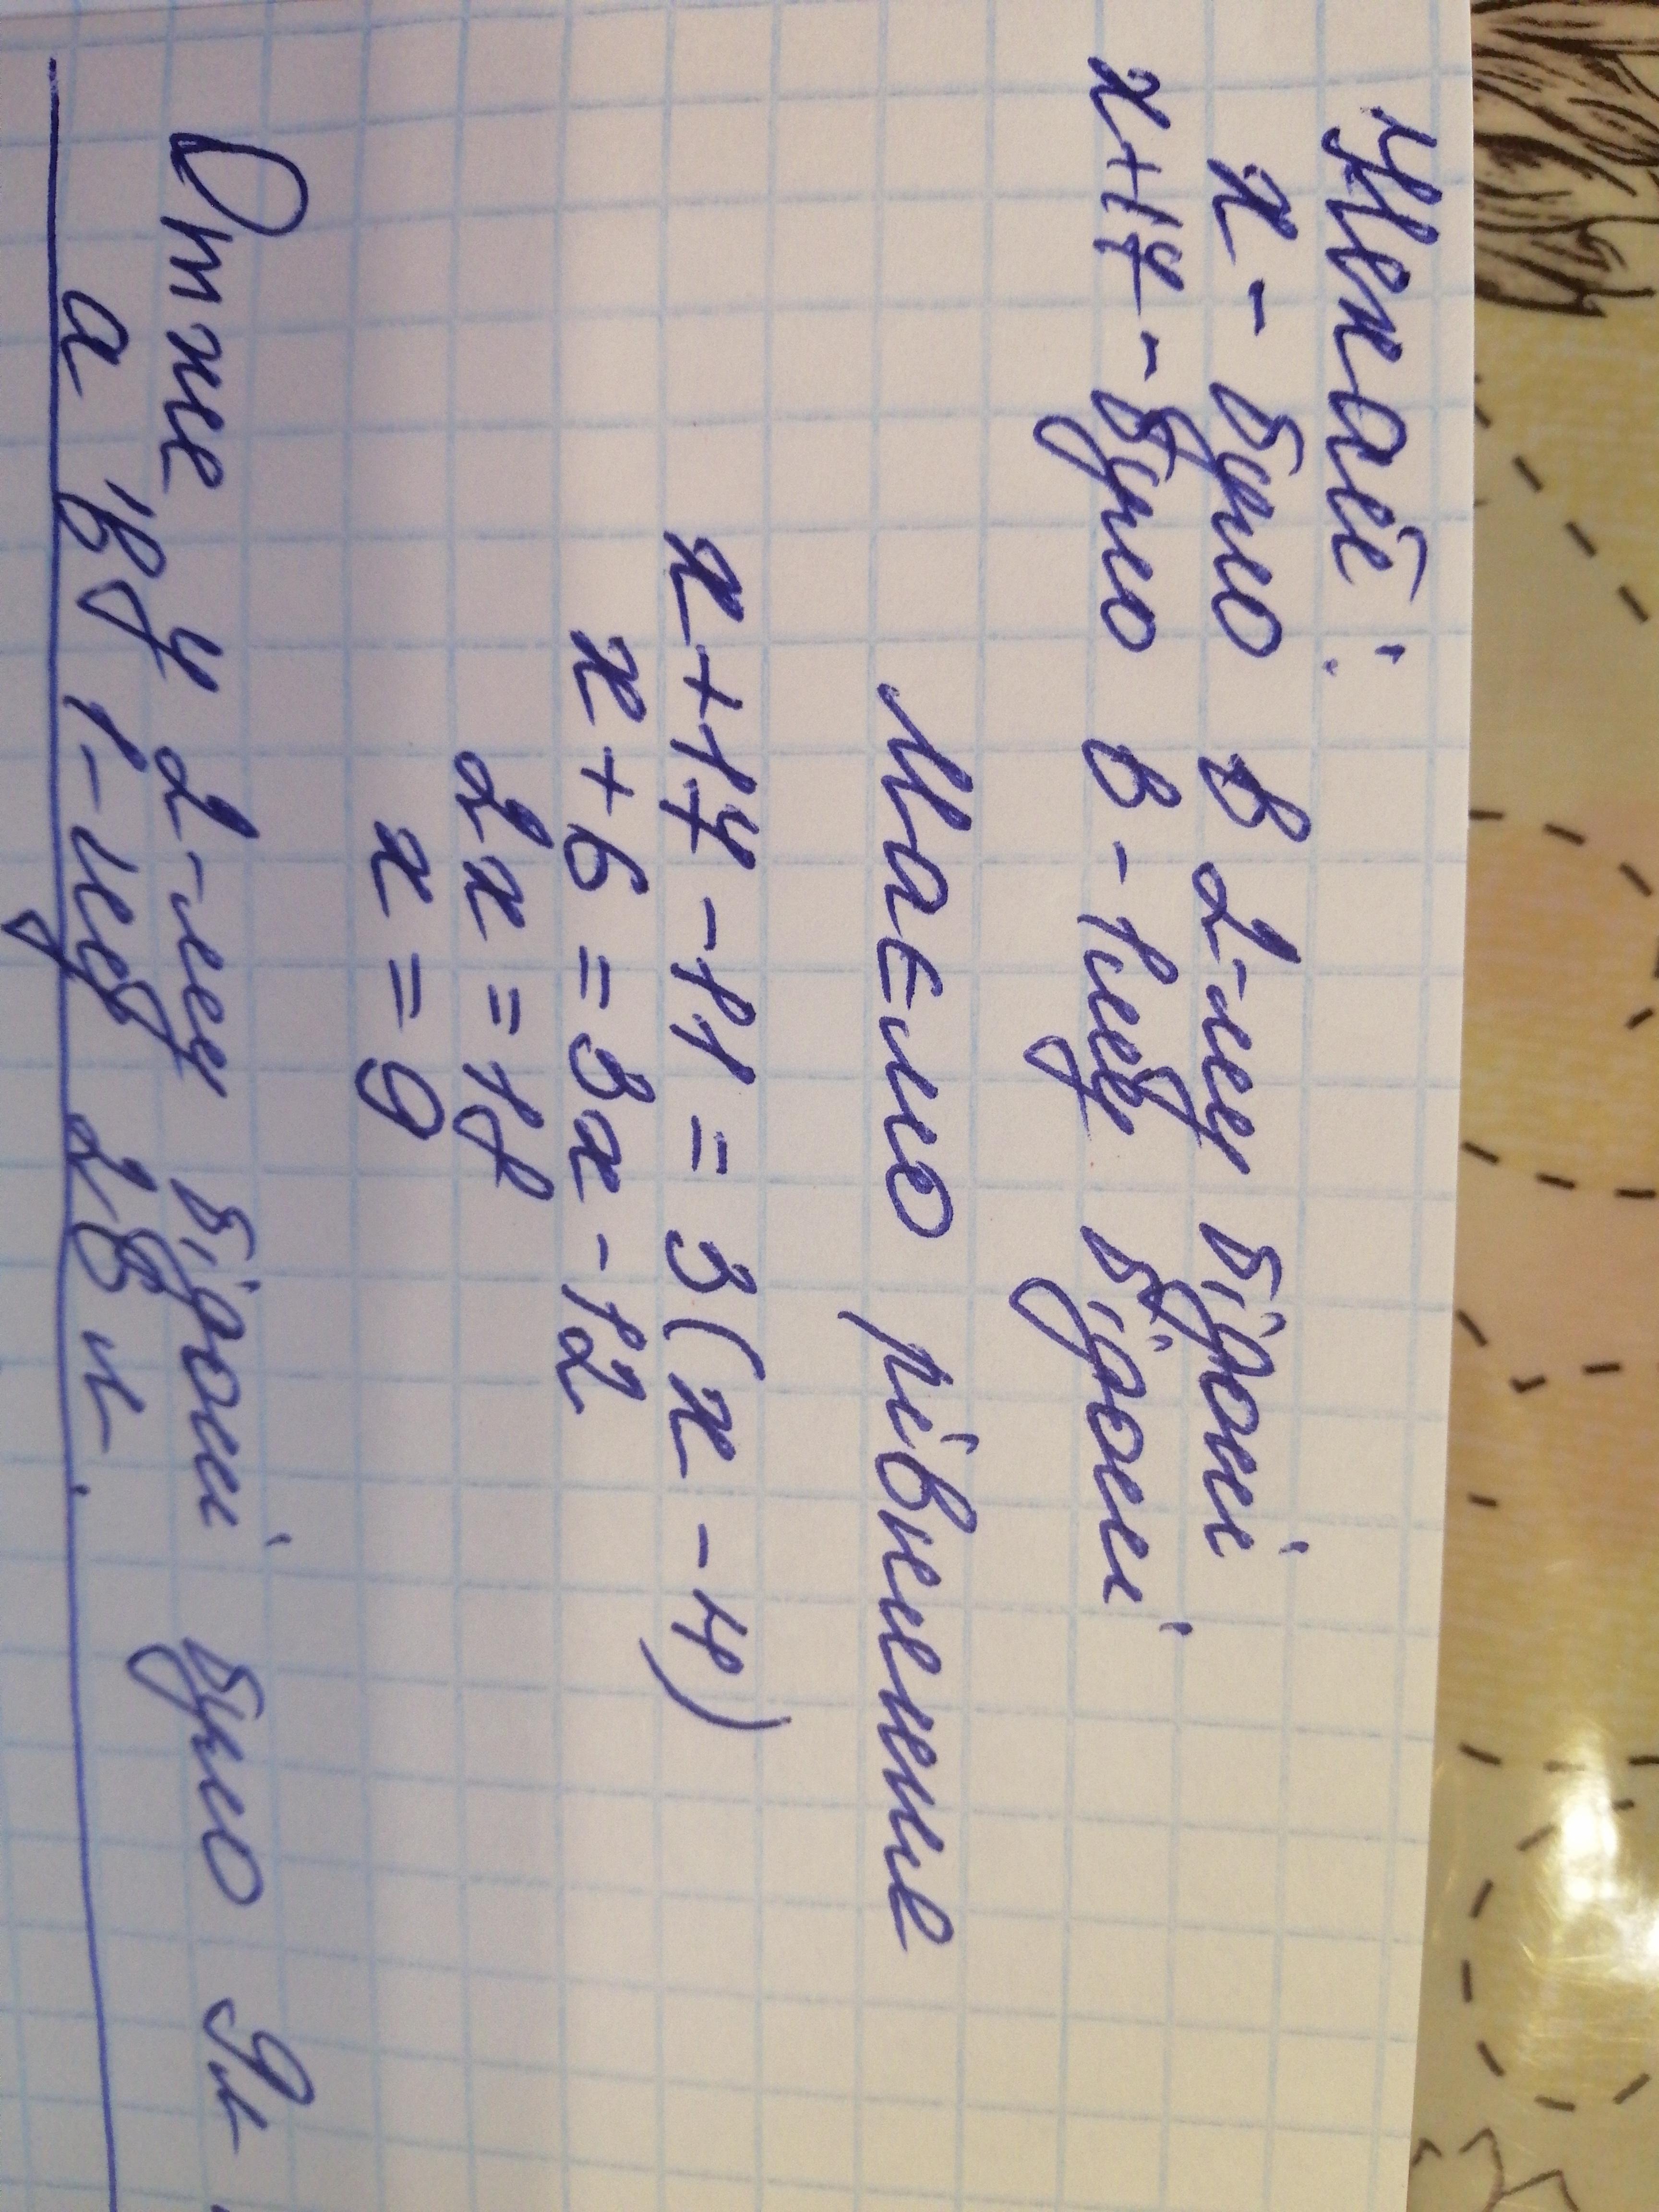 Нехай:
x - було в 2-му бідоні
x+17 - було в-1му бідоні
Маємо рівнение
x+17-11=3(x-4)
x+6=3x-12
2x=18
x=9
Отже у 2-му бідоні було 9л
а у 1-му 26 л.